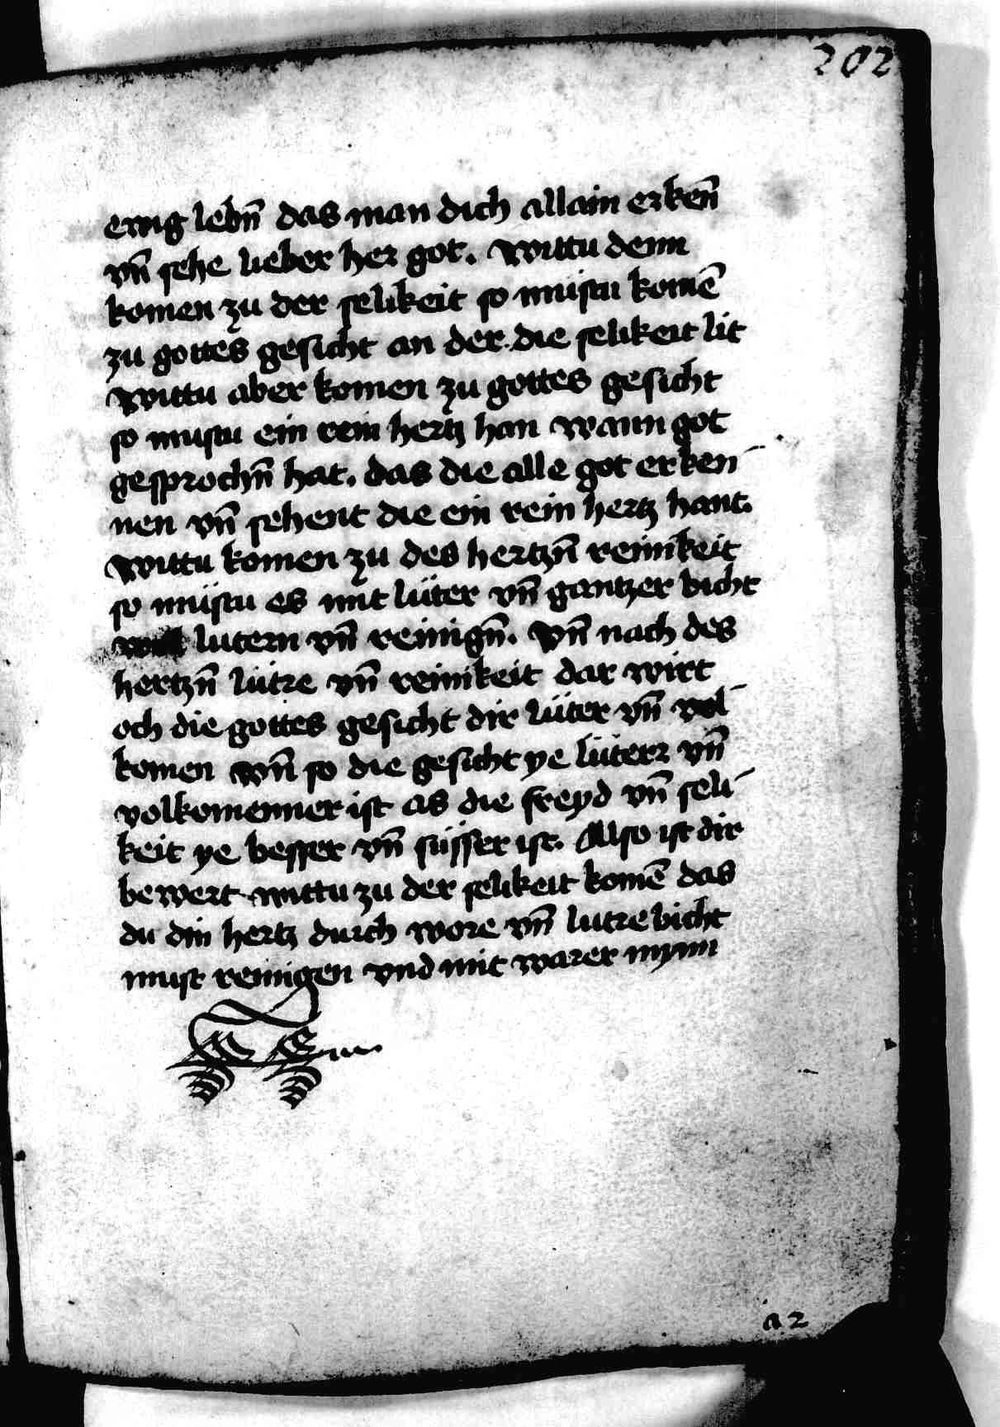 202
ewig lebn̄ das man dich allain erken̄
vn̄ sehe lieber her got. Wittu denn
komen zu der selikeit so mustu komē
zu gottes gesicht an der die selikeit lit
Wittu aber komen zu gottes gesicht
so mustu ein rein hertz han wann got
gesprochn̄ hat. das die alle got erken-
nen vn̄ sehent die ein rein hertz hant.
Wittu komen zu des hertzn̄ reinikeit
so müstu es mit lüter vn̄ gantzer bicht
lutern vn̄ reinign̄. Vn̄ nach des
hertzn̄ lütre vn̄ reinikeit dar wirt
och die gottes gesicht dir lüter vn̄ vol-
komen wn̄ so die gesicht ye lüterr vn̄
volkomenner ist as die freyd vn̄ seli-
keit ye besser vn̄ süsser ist. Also ist dir
bewert wittu zu der selikeit komē das
du din hertz durch wore vn̄ lutre bicht
must reinigen vnd mit warer mynn
a 2